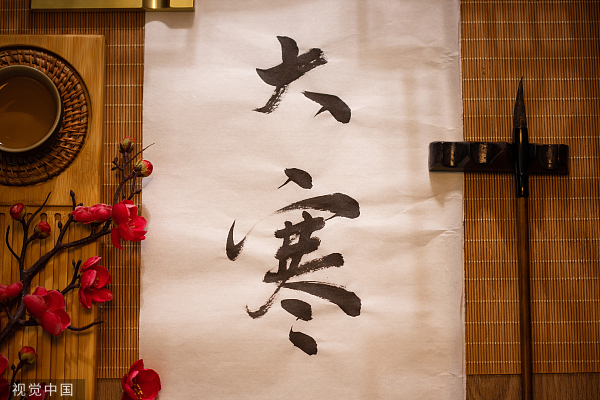 大
寒
视觉中国